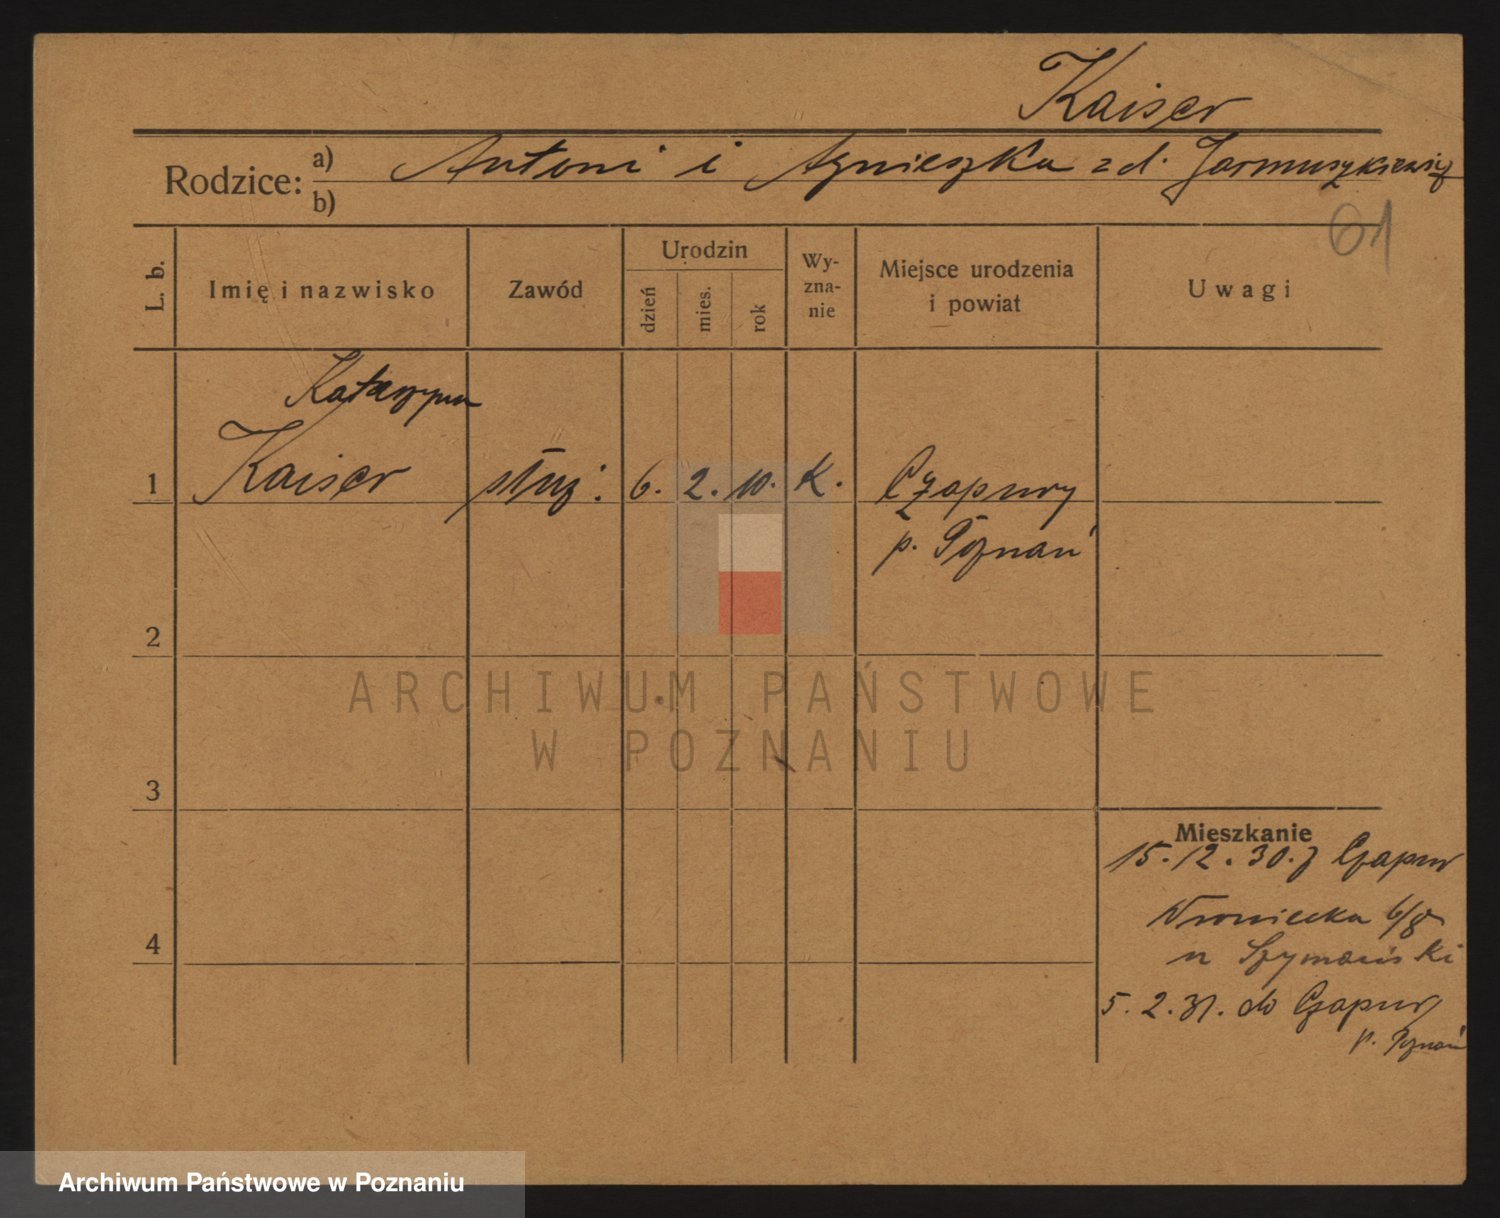 Kaiser
Rodzice: a) Antoni i Agnieszka z d. Jarmuszkiewicz
b)
61
L. b. Imię i nazwisko Zawód Urodzin dzień mies. rok Wy-zna-nie Miejsce urodzenia i powiat Uwagi
Katarzyna
1 Kaiser służ. 6. 2. 10. K. Czapury
p. Poznań
2
ARCHIWUM PAŃSTWOWE
W POZNANIU
3
Mieszkanie
15.12.30. z Czapur
Wroniecka 6/8
u Szymański
4
5.2.31. do Czapury
p. Poznań
Archiwum Państwowe w Poznaniu